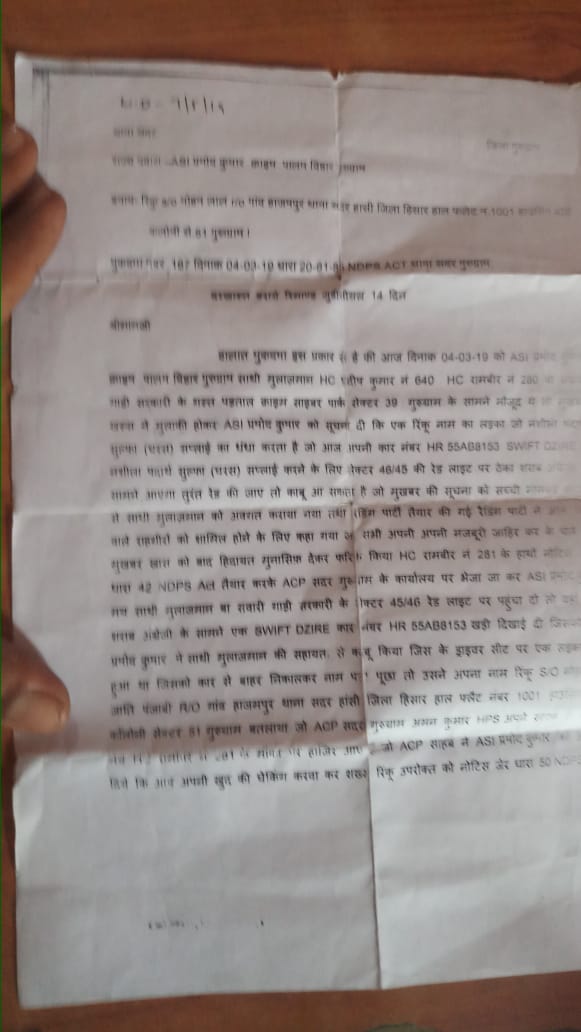 थाना सदर
जिला गुरुग्राम
राज्य बनाम -ASI प्रमोद कुमार क्राइम पालम विहार गुरुग्राम
बनाम रिंकु S/O मोहन लाल r/o गांव हाजमपुर थाना सदर हांसी जिला हिसार हाल फलैट न.1001 हाउसिंग बोर्ड
कलोनी से 51 गुरुग्राम।
मुकदमा नंबर 167 दिनांक 04-03-19 धारा 20-61-85 NDPS ACT थाना सदर गुरुग्राम
दरखास्त बराये रिमाण्ड जुडीशीयल 14 दिन
श्रीमानजी
हालात मुकदमा इस प्रकार से है की आज दिनांक 04-03-19 को ASI प्रमोद
क्राइम पालम विहार गुरुग्राम साथी मुलाजमान HC कुमार नं 640 HC रामबीर नं
गाड़ी सरकारी के गस्त पड़ताल क्राइम साइबर पार्क सेक्टर 39 गुरुग्राम के सामने मौजूद थे
खास ने मुलाकी होकर ASI प्रमोद कुमार को सूचना दी कि एक रिंकू नाम का लड़का जो नशीला
सुल्फा (चरस) सप्लाई का धंधा करता है जो आज अपनी कार नंबर HR 55AB8153 SWIFT DZIRE
नशीला पदार्थ सुल्फा (चरस) सप्लाई करने के लिए सेक्टर 46/45 की रेड लाइट पर ठेका शराब
सामने आएगा तुरंत रेड की जाए तो काबू आ सकता है जो मुखबर की सूचना को सच्ची
से साथी मुलाजमान को अवगत कराया गया तथा रेडिंग पार्टी तैयार की गई रेडिंग पार्टी ने आने
वाले राहगीरों को शामिल होने के लिए कहा गया जो सभी अपनी अपनी मजबूरी जाहिर कर के चले
मुखबर खास को बाद हिदायत मुनासिफ देकर फारिक किया HC रामबीर नं 281 के हाथो नोटिस
धारा 42 NDPS Act तैयार करके ACP सदर गुरुग्राम के कार्यालय पर भेजा जा कर ASI प्रमोद
मय साथी मुलाजमान बा सवारी गाड़ी सरकारी के सेक्टर 45/46 रेड लाइट पर पहुंचा दो तो वहां
शराब अंग्रेजी के सामने एक SWIFT DZIRE कार नंबर HR 55AB8153 खड़ी दिखाई दी जिसको
प्रमोद कुमार ने साथी मुलाजमान की सहायता से काबू किया जिस के ड्राइवर सीट पर एक लड़का
हुआ था जिसको कार से बाहर निकालकर नाम पता पूछा तो उसने अपना नाम रिंकू S/O
जाति पंजाबी R/O गांव हाजमपुर थाना सदर हांसी जिला हिसार हाल फ्लैट नंबर 1001
कॉलोनी सेक्टर 51 गुरुग्राम बतलाया जो ACP सदर गुरुग्राम अमन कुमार HPS अपने
HC रामबीर नं 281 के मौका पर हाजिर आए जो ACP साहब ने ASI प्रमोद कुमार
दिये कि आप अपनी खुद की चेकिंग करवा कर शख्स रिंकू उपरोक्त को नोटिस जेर धारा 50 NDPS